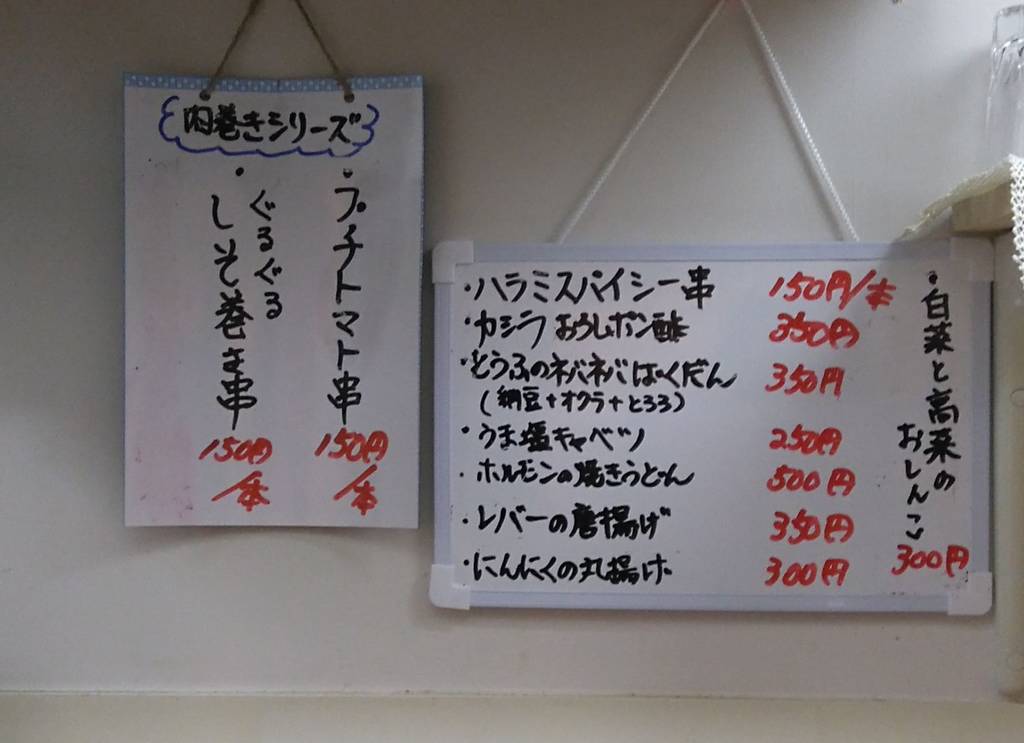 肉巻きシリーズ
・プチトマト串
150円
/本
・ぐるぐる
しそ巻き串
150円
/本
・ハラミスパイシー串 150円/本
・カシラおろしポン酢 350円
・とうふのネバネバばくだん 350円
(納豆+オクラ+とろろ)
・うま塩キャベツ 250円
・ホルモンの焼きうどん 500円
・レバーの唐揚げ 350円
・にんにくの丸揚げ 300円
・白菜と高菜の
おしんこ
300円